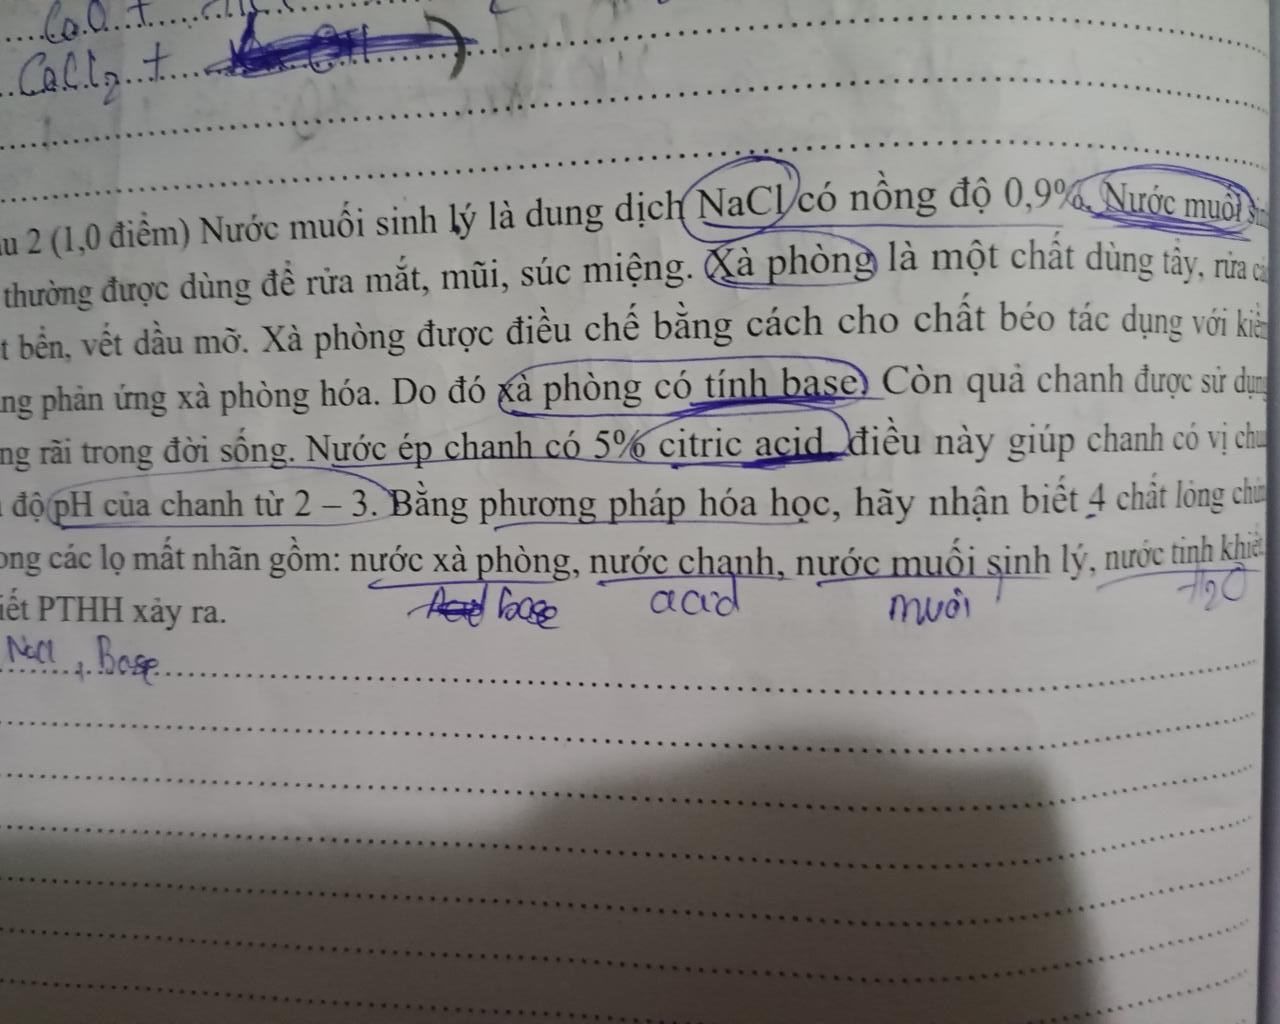 CaO +
CaCl2 + OH
u 2 (1,0 điểm) Nước muối sinh lý là dung dịch NaCl có nồng độ 0,9%. Nước muối sin
thường được dùng để rửa mắt, mũi, súc miệng. Xà phòng là một chất dùng tẩy, rửa cá
t bẩn, vết dầu mỡ. Xà phòng được điều chế bằng cách cho chất béo tác dụng với kiề
ng phản ứng xà phòng hóa. Do đó xà phòng có tính base. Còn quả chanh được sử dụng
ng rãi trong đời sống. Nước ép chanh có 5% citric acid, điều này giúp chanh có vị chu
độ pH của chanh từ 2 – 3. Bằng phương pháp hóa học, hãy nhận biết 4 chất lỏng chứa
ong các lọ mất nhãn gồm: nước xà phòng, nước chanh, nước muối sinh lý, nước tinh khiết.
base acid muối H2O
iết PTHH xảy ra.
NaCl, Base